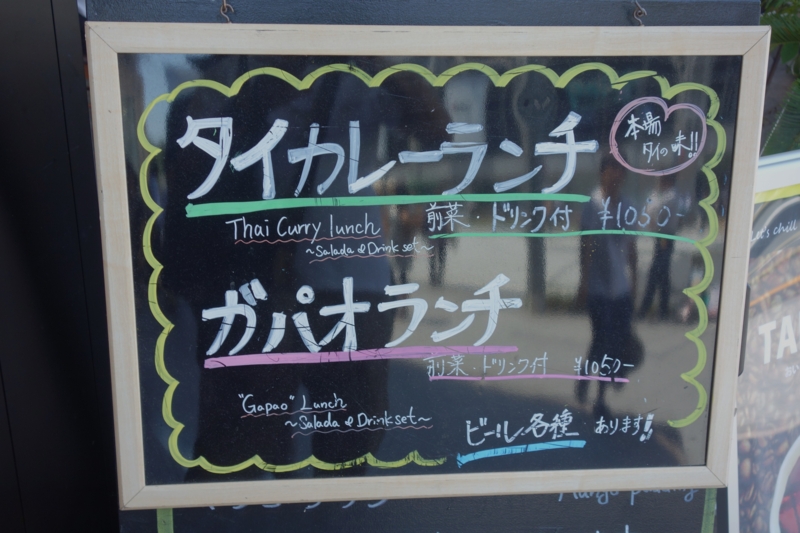 タイカレーランチ
本場
タイの味!!
Thai Curry lunch
前菜・ドリンク付 ¥1050-
~Salada & Drink set~
ガパオランチ
前菜・ドリンク付 ¥1050-
"Gapao" Lunch
~Salada & Drink set~
ビール各種 あります!!
let's chill
TA